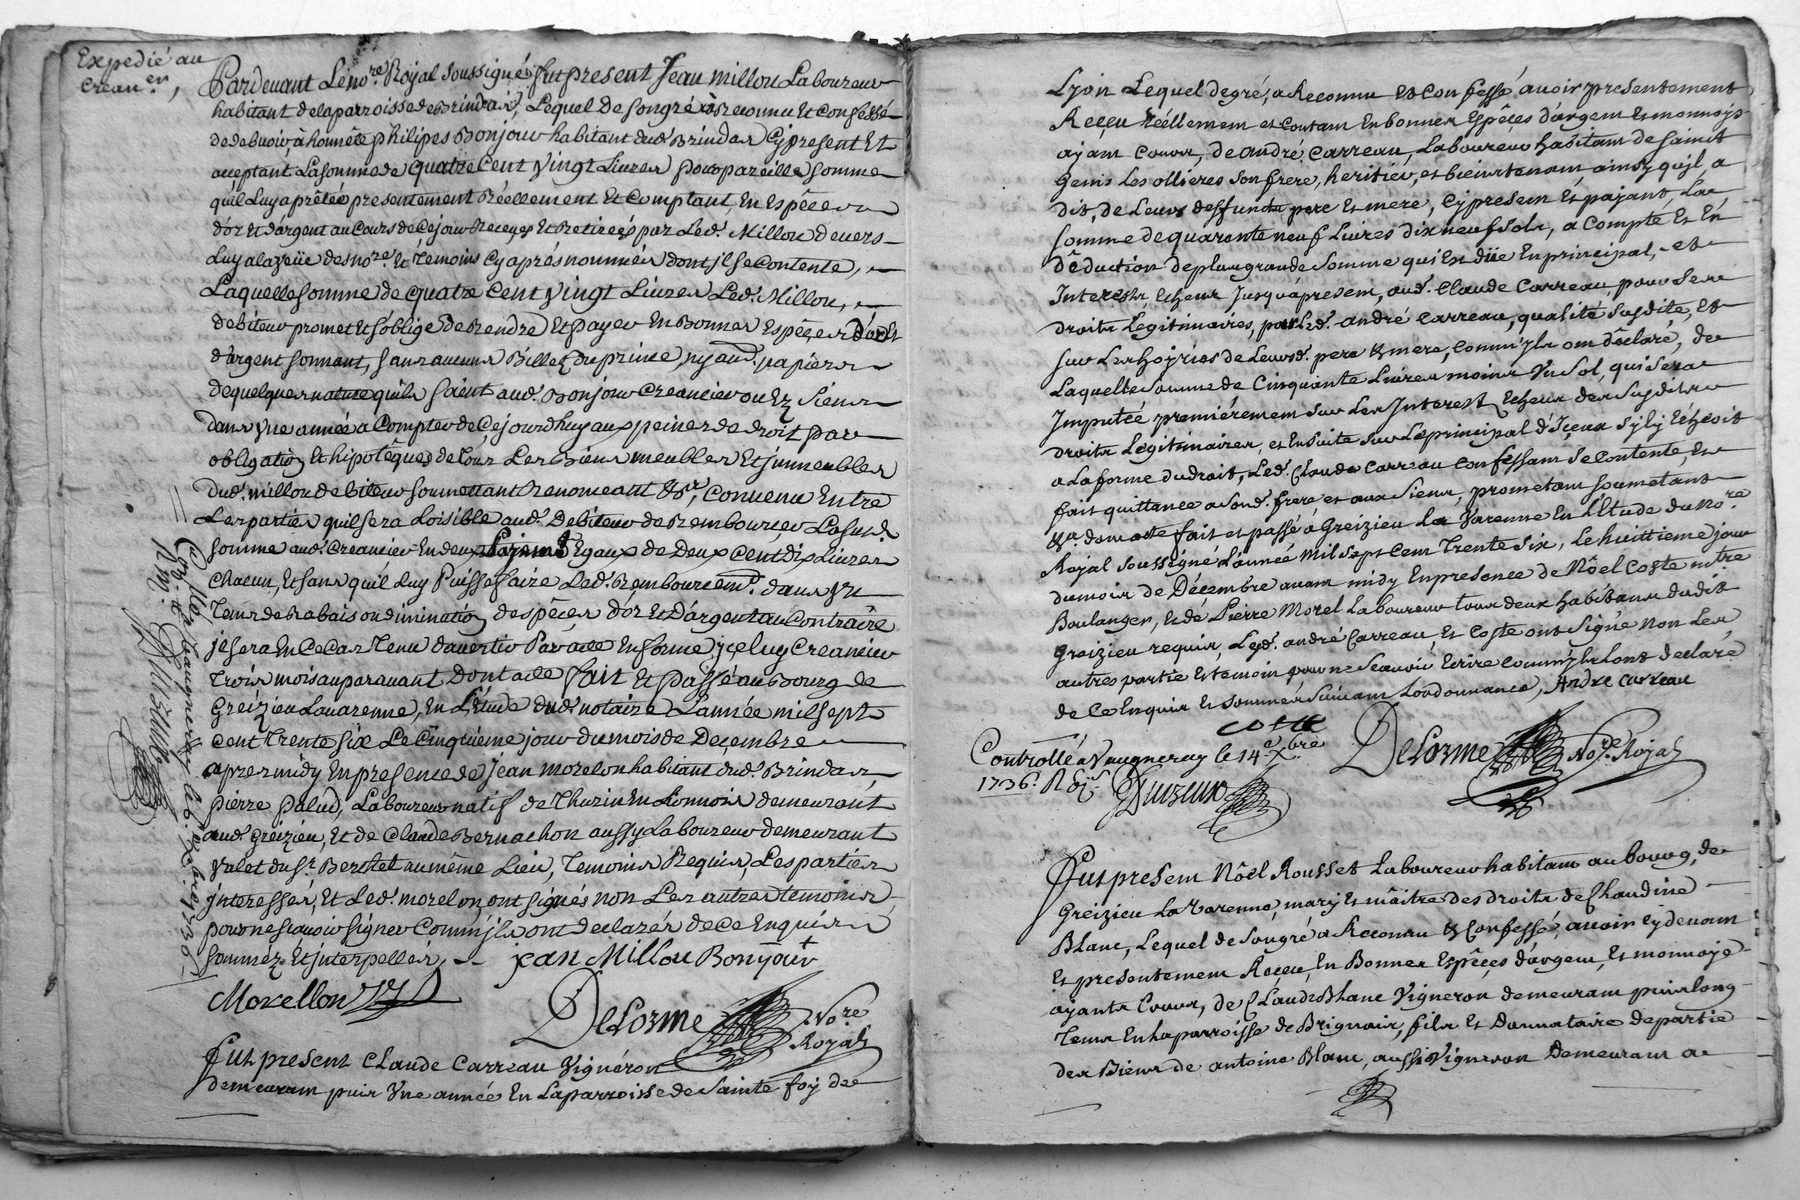 Expedié au
Crean.er,
Pardevant Le no.re Royal soussigné fut present Jean Millou Laboureur
habitant de la parroisse de Brindas, Lequel de son gré a Reconnu et Confessé
de debvoir à honnête philipes Bonjour habitant dud. Brindas Cy present et
aceptant La somme de quatre cent vingt Livres pour pareille somme
qu'il Luy a prêtée presentement Réellement et Comptant, en Espêces
d'or et d'argent au Cours de Ce jour Receües et Retirées par Led. Millou devers
Luy a la veüe desd. no.re et Temoins Cy aprés nommées dont jl se Contente,
Laquelle somme de quatre cent vingt Livres Led. Millou,
debiteur promet et s'oblige de Rendre et payer en Bonnes Espêçes d'or et
d'argent sonnant, sans aucuns Billet du prince, ny aud. papiers
de quelques nature quils soient aud. Bonjour Creancier ou Ez siens
dans une année a Compter de Ce jourdhuy aux peines de droit par
obligation et hipotêques de tous Les Biens meubles et jmmeubles
dud. millou debiteur soumettant Renonceant &a, Convenu Entre
Les parties quil sera Loisible aud. Debiteur de Rembourcer La susd.
somme aud. Creancier en deux Egaux de Deux cent dix Livres
chacun, et sans quil Luy Puisse faire Led. Rembourcem.t dans un
Tems de Rabais ou diminution despêces d'or et d'argent au Contraire
jl sera en Ce Cas Tenu d'avertir Par acte en forme jceluy Creancier
Trois mois auparavant Dont acte fait et passé au Bourg de
Greizieu Lavarenne, en L'étude dud. notaire L'année mil sept
cent Trente six Le Cinquieme jour du mois de Decembre
apres midy en presence de jean morelon habitant dud. Brindas,
pierre palud, Laboureur natif de Thurin en Lionnois demeurant
aud. Greizieu, et de Claude Bernachon aussy Laboureur demeurant
valet du S.r Berthet au même Lieu, Temoins Requis, Les parties
jnteressés, et Led. morelon ont signés non Les autres temoins
pour ne sçavoir signer Comm'jls ont declarés de ce Enquis
sommés et jnterpellés, jean Millou Bonjour
Morellon
DeLorme No.re
Royal
Con.llé à Vaugneray le 1736
Fut present Claude Carreau Vigneron
demeurant puis Une année En La parroisse de Sainte foy de
Lyon Lequel de gré, a Reconnu et Confessé avoir presentement
Receu réellement et contant En bonnes Espêçes d'argent et monnoye
ajant Cours, de andré Carreau, Laboureur habitant de Saint
Genis Les ollieres son frere, heritier, et bientenant ainsy qu'jl a
dit, de Leurs deffuncts pere et mere, Cy present et pajant, La
somme de quarente neuf Livres dix neuf sols, a Compte et En
déduction de plus grande somme qui Est düe En principal, et
Interests, Echeus Jusqu'apresent, aud. Claude Carreau pour ses
droits Legitimaires, par Led. andré Carreau, qualité susdite, et
sur Les hojries de Leursd. pere & mere, Comm'jls ont déclaré, de
Laquelle somme de Cinquante Livres moins Un sol, qui sera
Imputée premiérement sur Les Interest Echeus des susdits
droits Légitimaires, et Ensuite sur Le principal d'Içeux s'jl y Echoit
a La forme du droit, Led. Claude Carreau Confessant se Contente, et
fait quittance a sond. frere et aux siens, prometant soumetant
&a. dont acte fait et passé à Greizieu La Varenne En L'Etude du No.re
Royal soussigné L'année mil sept cent Trente six, Le huittieme jour
du mois de Décembre avant midy En presence de Nôel Coste m.tre
Boulanger, et de Pierre Morel Laboureur tous deux habitans dudit
Greizieu requis, Led. andré Carreau et Coste ont signé non Les
autres partie et temoin pour ne scavoir Ecrire Comm'jls L'ont declaré
de Ce Enquis et sommés suivant Lordonnance, Andre carreau
coste
DeLorme No.re Royal
Controllé a Vaugneray le 14e Xbre
1736.
Fut present Nôel Rousset Laboureur habitant au bourg, de
Greizieu La Varenne, mary et mâitre des droits de Claudine
Blanc, Lequel de son gré a Reconnu & Confessé, avoir Cy devant
et presentement Receu, En Bonnes Espêçes d'argent, et monnoye
ajants Cours, de Claude Blanc Vigneron demeurant puis long
Tems En La parroisse de Brignais, fils et Donnataire de partie
des Biens de antoine Blanc, aussi Vigneron Demeurant a